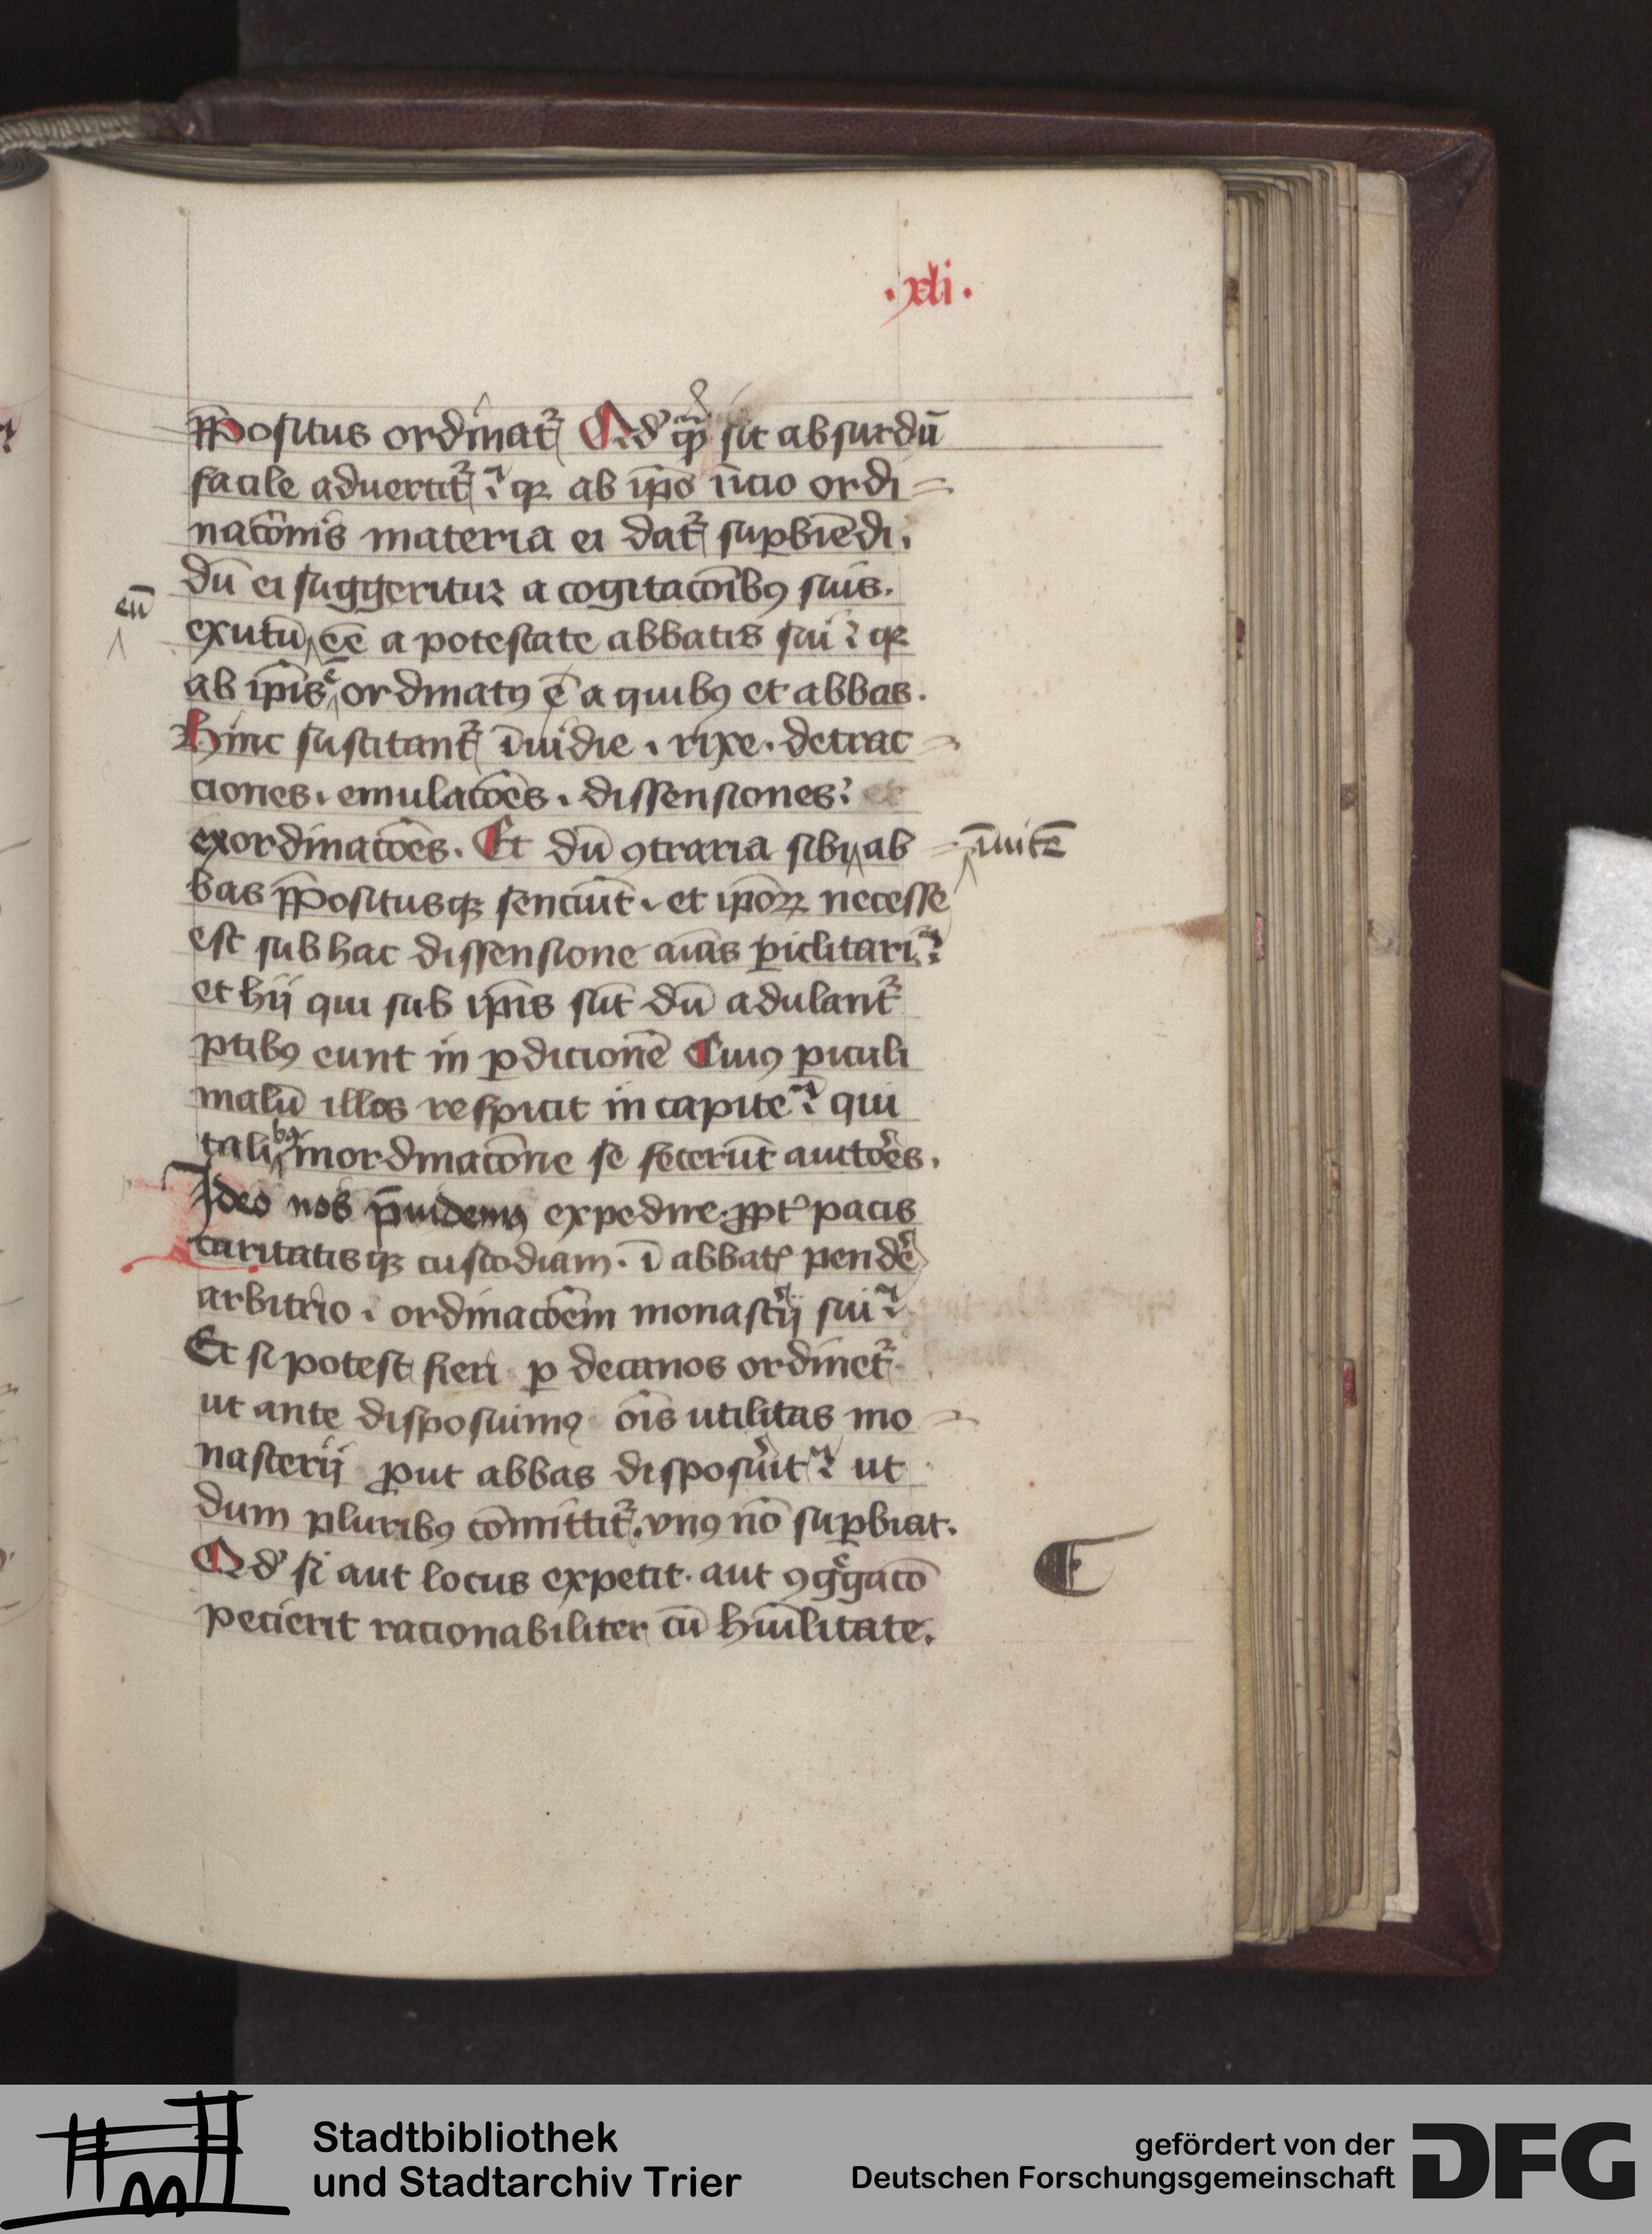 .xli.
p̄positus ordinat᷑ Qd' qᷓ sit absurdū
facile aduertit᷑ qꝛ ab ip̄o īicio ordi=
nacōnis materia ei dat᷑ suꝑbiēdi.
dū ei suggeritur a cogitacōibꝯ suis.
eū
exutū ēe a potestate abbatis sui qꝛ
ab ip̄is ordinatꝯ ē a quibꝯ et abbas.
Hinc suscitant᷑ īuidie. rixe. detrac=
ciones. emulacōes. dissensiones et
exordinacōes. Et dū ꝯtraria sibi ab=
īuicē
bas p̄positusqꝫ senciūt. et ip̄oꝝ necesse
est sub hac dissensione aīas ꝑiclitari
et hij qui sub ip̄is sūt dū adulant᷑
ꝑtibꝯ eunt in ꝑdicionē Cuiꝯ ꝑiculi
malū illos respicit in capite qui
talibꝯ inordinacōne se fecerūt auctōes.
Ideo nos p̄uidemꝯ expedire ꝓpt᷑ pacis
caritatisqꝫ custodiam. ī abbatꝭ pendē
arbitrio. ordinacōem monastij sui
Et si potest fieri ꝑ decanos ordinet᷑
ut ante disposuimꝯ oīs utilitas mo=
nasterij ꝓut abbas disposuit ut
dum pluribꝯ cōmittit᷑. vnꝯ nō suꝑbiat.
Qd' si aut locus expetit. aut ꝯgͤgacō
pecierit racionabiliter cū hūilitate.
Stadtbibliothek
und Stadtarchiv Trier
gefördert von der
Deutschen Forschungsgemeinschaft
DFG